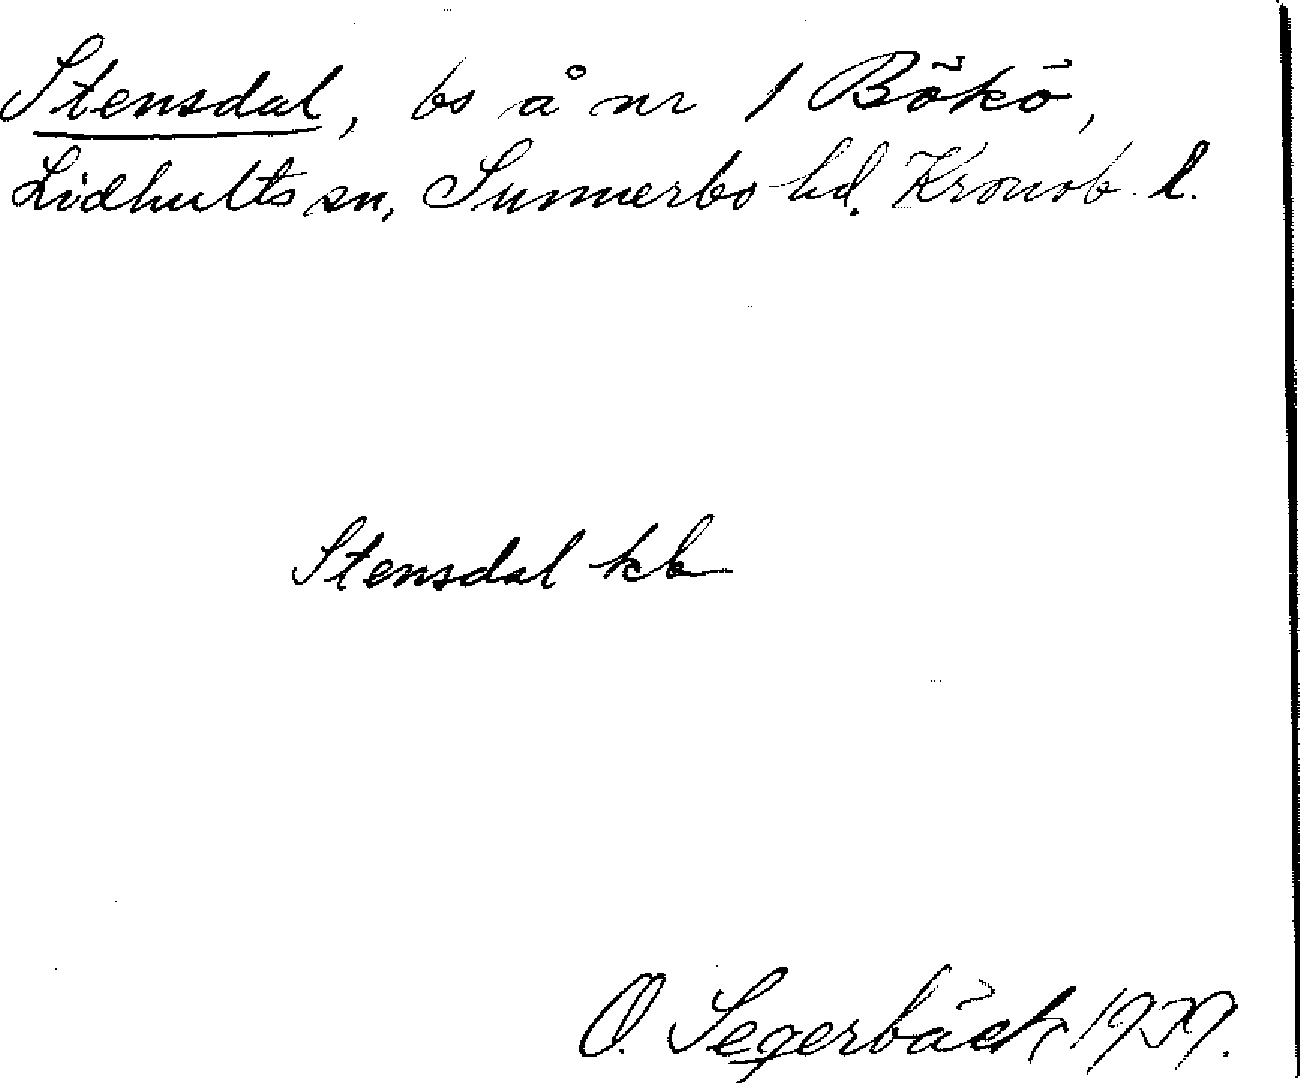 Stensdal, bs å nr 1 Bökö,
Lidhults sn, Sunnerbo hd. Kronob. l.
Stensdal kb
O. Segerbäck